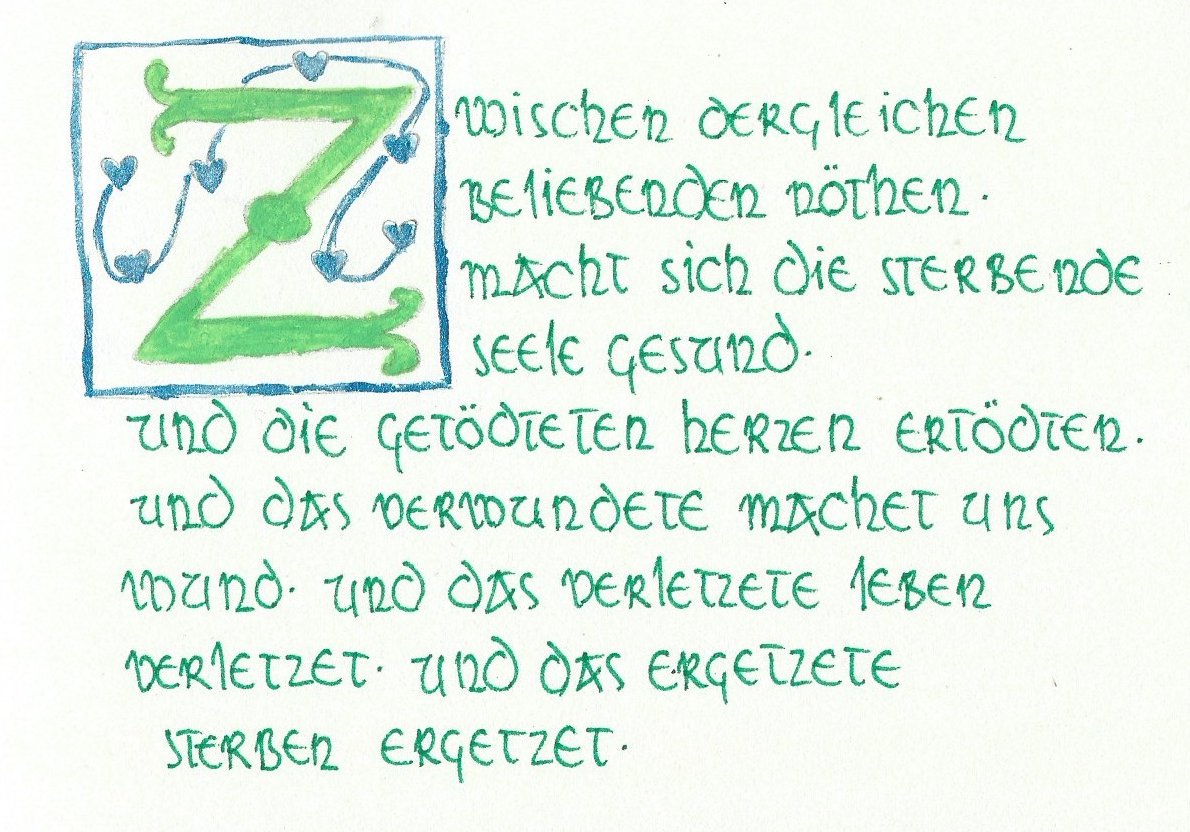 Zwischen dergleichen
beliebenden nöthen.
macht sich die sterbende
seele gesund.
und die getödteten herzen ertödten.
und das verwundete machet uns
wund. und das verletzete leben
verletzet. und das ergetzete
sterben ergetzet.